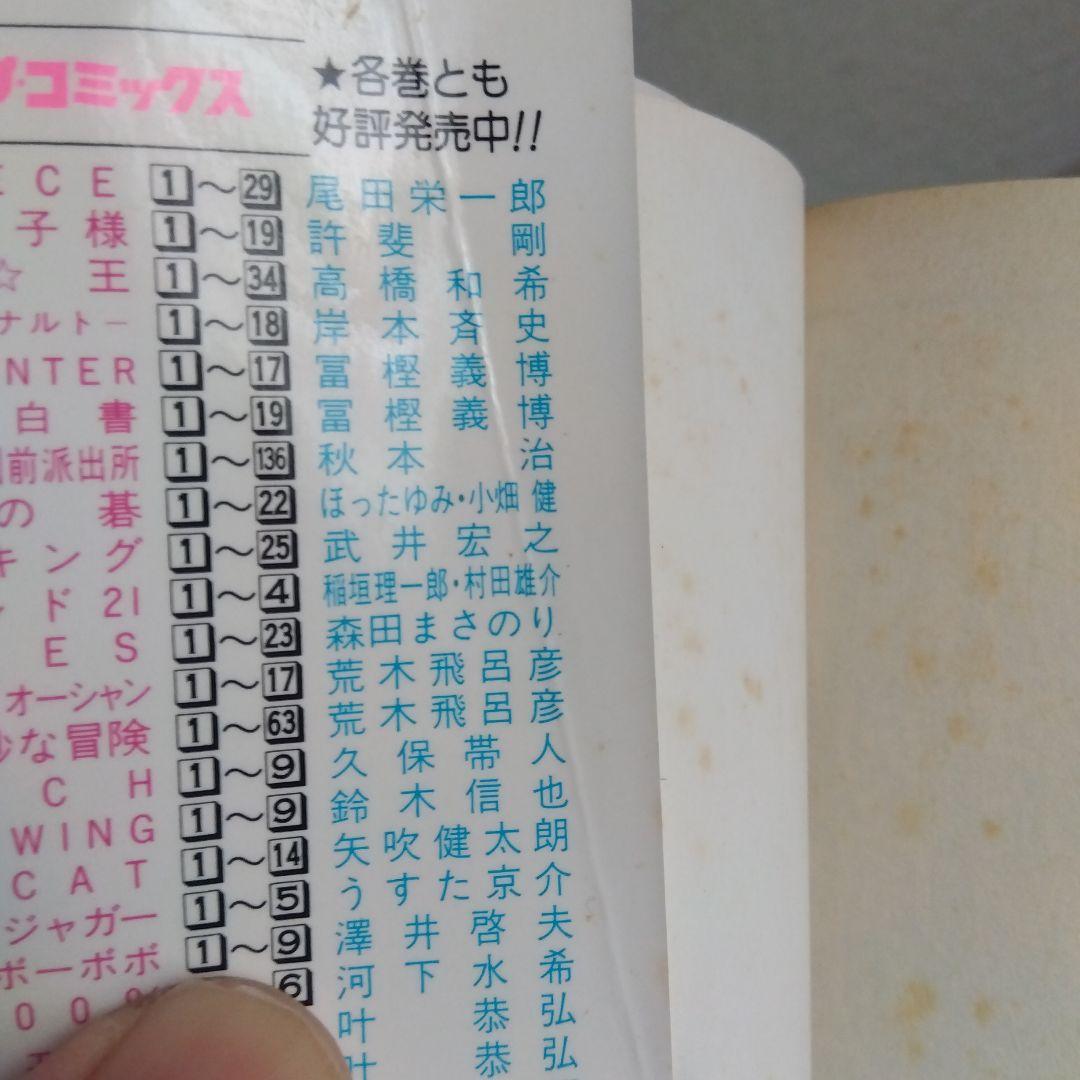 プ・コミックス
★各巻とも
好評発売中!!
ECE 1～29 尾田栄一郎
子様 1～19 許斐剛
☆王 1～34 高橋和希
ナルトー 1～18 岸本斉史
NTER 1～17 冨樫義博
白書 1～19 冨樫義博
前派出所 1～136 秋本治
の碁 1～22 ほったゆみ・小畑健
キング 1～25 武井宏之
ド21 1～4 稲垣理一郎・村田雄介
ES 1～23 森田まさのり
オーシャン 1～17 荒木飛呂彦
妙な冒険 1～63 荒木飛呂彦
CH 1～9 久保帯人
WING 1～9 鈴木信也
CAT 1～14 矢吹健太朗
ジャガー 1～5 うすた京介
ボーボボ 1～9 澤井啓夫
00% 6 河下水希
叶恭弘
叶恭弘